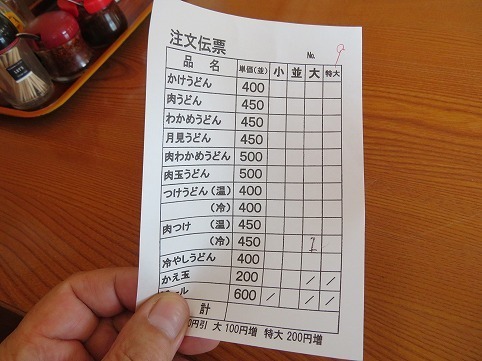 注文伝票 No. 9
品名 単価(並) 小 並 大 特大
かけうどん 400
肉うどん 450
わかめうどん 450
月見うどん 450
肉わかめうどん 500
肉玉うどん 500
つけうどん (温) 400
(冷) 400
肉つけ (温) 450
(冷) 450 1
冷やしうどん 400
かえ玉 200 / /
ール 600 / / /
計
0円引 大 100円増 特大 200円増